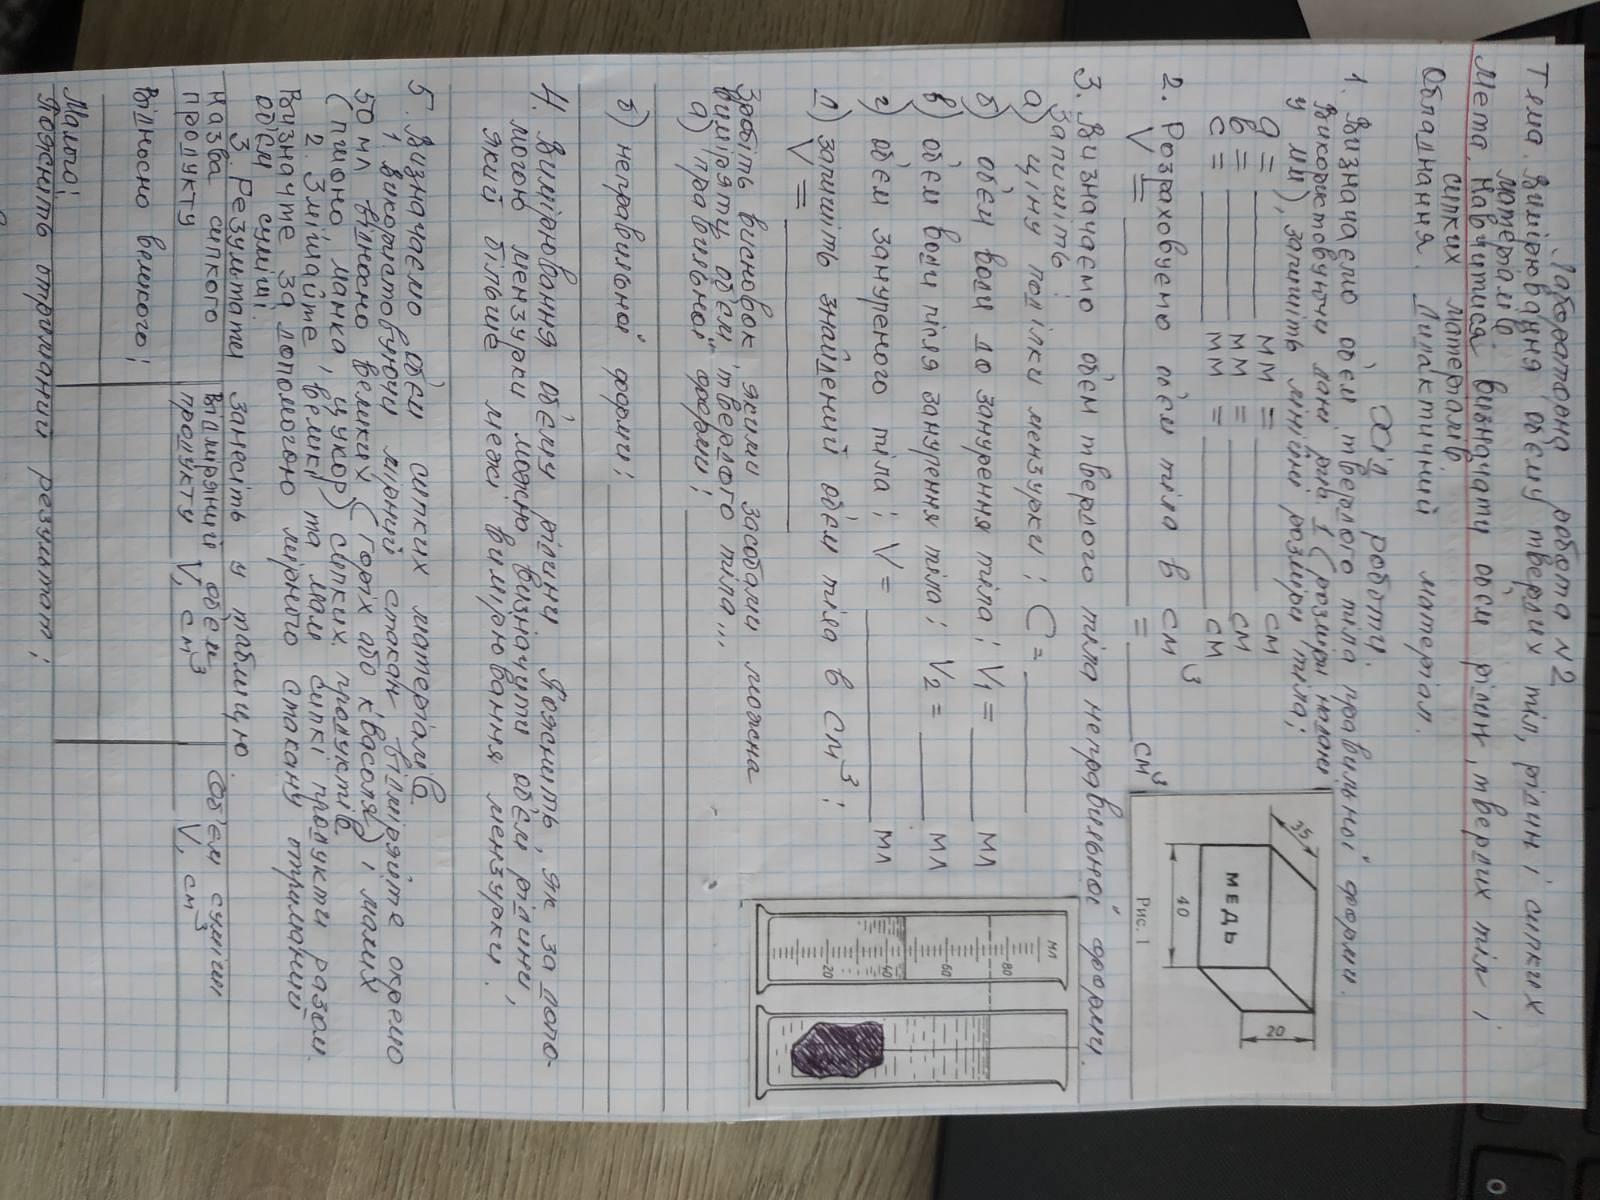 Лабораторна робота №2
Тема. Вимірювання об'єму твердих тіл, рідин і сипких
матеріалів.
Мета. Навчитися визначати об'єм рідин, твердих тіл і
сипких матеріалів.
Обладнання. Дидактичний матеріал.
Хід роботи.
1. Визначаємо об'єм твердого тіла правильної форми.
Використовуючи дані рис 1 (розміри надані
у мм), запишіть лінійні розміри тіла;
a = ______ мм = ______ см
b = ______ мм = ______ см
c = ______ мм = ______ см
35
МЕДЬ
20
40
Рис. 1
2. Розраховуємо об'єм тіла в см³
V = ______ = ______ см³
3. Визначаємо об'єм твердого тіла неправильної форми.
Запишіть:
а) ціну поділки мензурки; C = ______
б) об'єм води до занурення тіла; V1 = ______ мл
в) об'єм води після занурення тіла; V2 = ______ мл
г) об'єм зануреного тіла; V = ______ мл
д) запишіть знайдений об'єм тіла в см³;
V = ______
мл
80
60
40
20
Зробіть висновок якими засобами можна
виміряти об'єм твердого тіла...
а) правильної форми; ______
б) неправильної форми; ______
4. Вимірювання об'єму рідини. Поясніть, як за допо-
могою мензурки можна визначити об'єм рідини,
який більше межі вимірювання мензурки.
5. Визначаємо об'єм сипких матеріалів
1. Використовуючи мірний стакан відміряйте окремо
50 мл відносно великих (горох або квасоля) і малих
(пшоно, манка, цукор) сипких продуктів
2. Змішайте великі та малі сипкі продукти разом.
Визначте за допомогою мірного стакану отриманий
об'єм суміші.
3. Результати занесіть у таблицю.
Назва сипкого
продукту
Відміряний об'єм
продукту V, см³
Об'єм суміші
V, см³
Відносно великого;
Малої;
Поясніть отриманий результат;